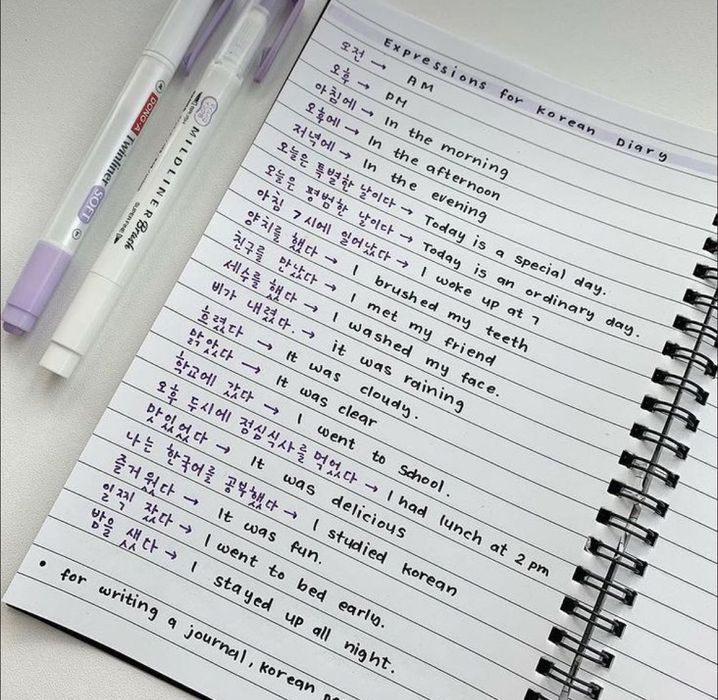 DONG-A Twinliner SOFT
MILDLINER Brush
SUPER FINE
Expressions for Korean Diary
오전 → AM
오후 → PM
아침에 → In the morning
오후에 → In the afternoon
저녁에 → In the evening
오늘은 특별한 날이다 → Today is a special day.
오늘은 평범한 날이다 → Today is an ordinary day.
아침 7시에 일어났다 → I woke up at 7
양치를 했다 → I brushed my teeth
친구를 만났다 → I met my friend
세수를 했다 → I washed my face.
비가 내렸다. → it was raining
흐렸다 → It was cloudy.
맑았다 → It was clear
학교에 갔다 → I went to School.
오후 두시에 점심식사를 먹었다 → I had lunch at 2 pm
맛있었다 → It was delicious
나는 한국어를 공부했다 → I studied Korean
즐거웠다 → It was fun.
일찍 잤다 → I went to bed early.
밤을 샜다 → I stayed up all night.
• for writing a journal, Korean